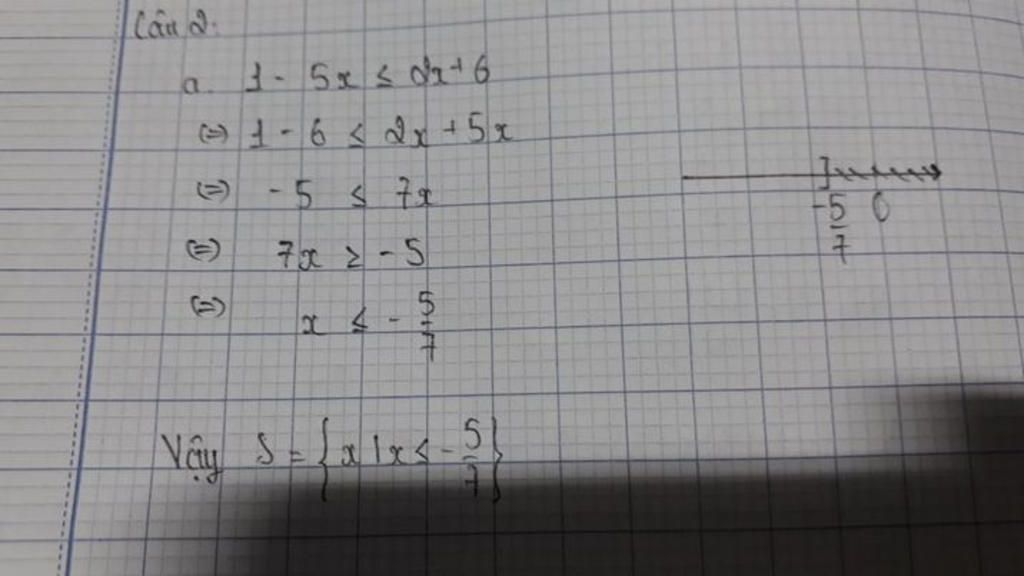 Câu 2:
a. 1 - 5x ≤ 2x + 6
(=) 1 - 6 ≤ 2x + 5x
(=) -5 ≤ 7x
(=) 7x ≥ -5
(=) x ≤ - 5/7
] -5/7 0
Vậy S = { x | x ≤ - 5/7 }